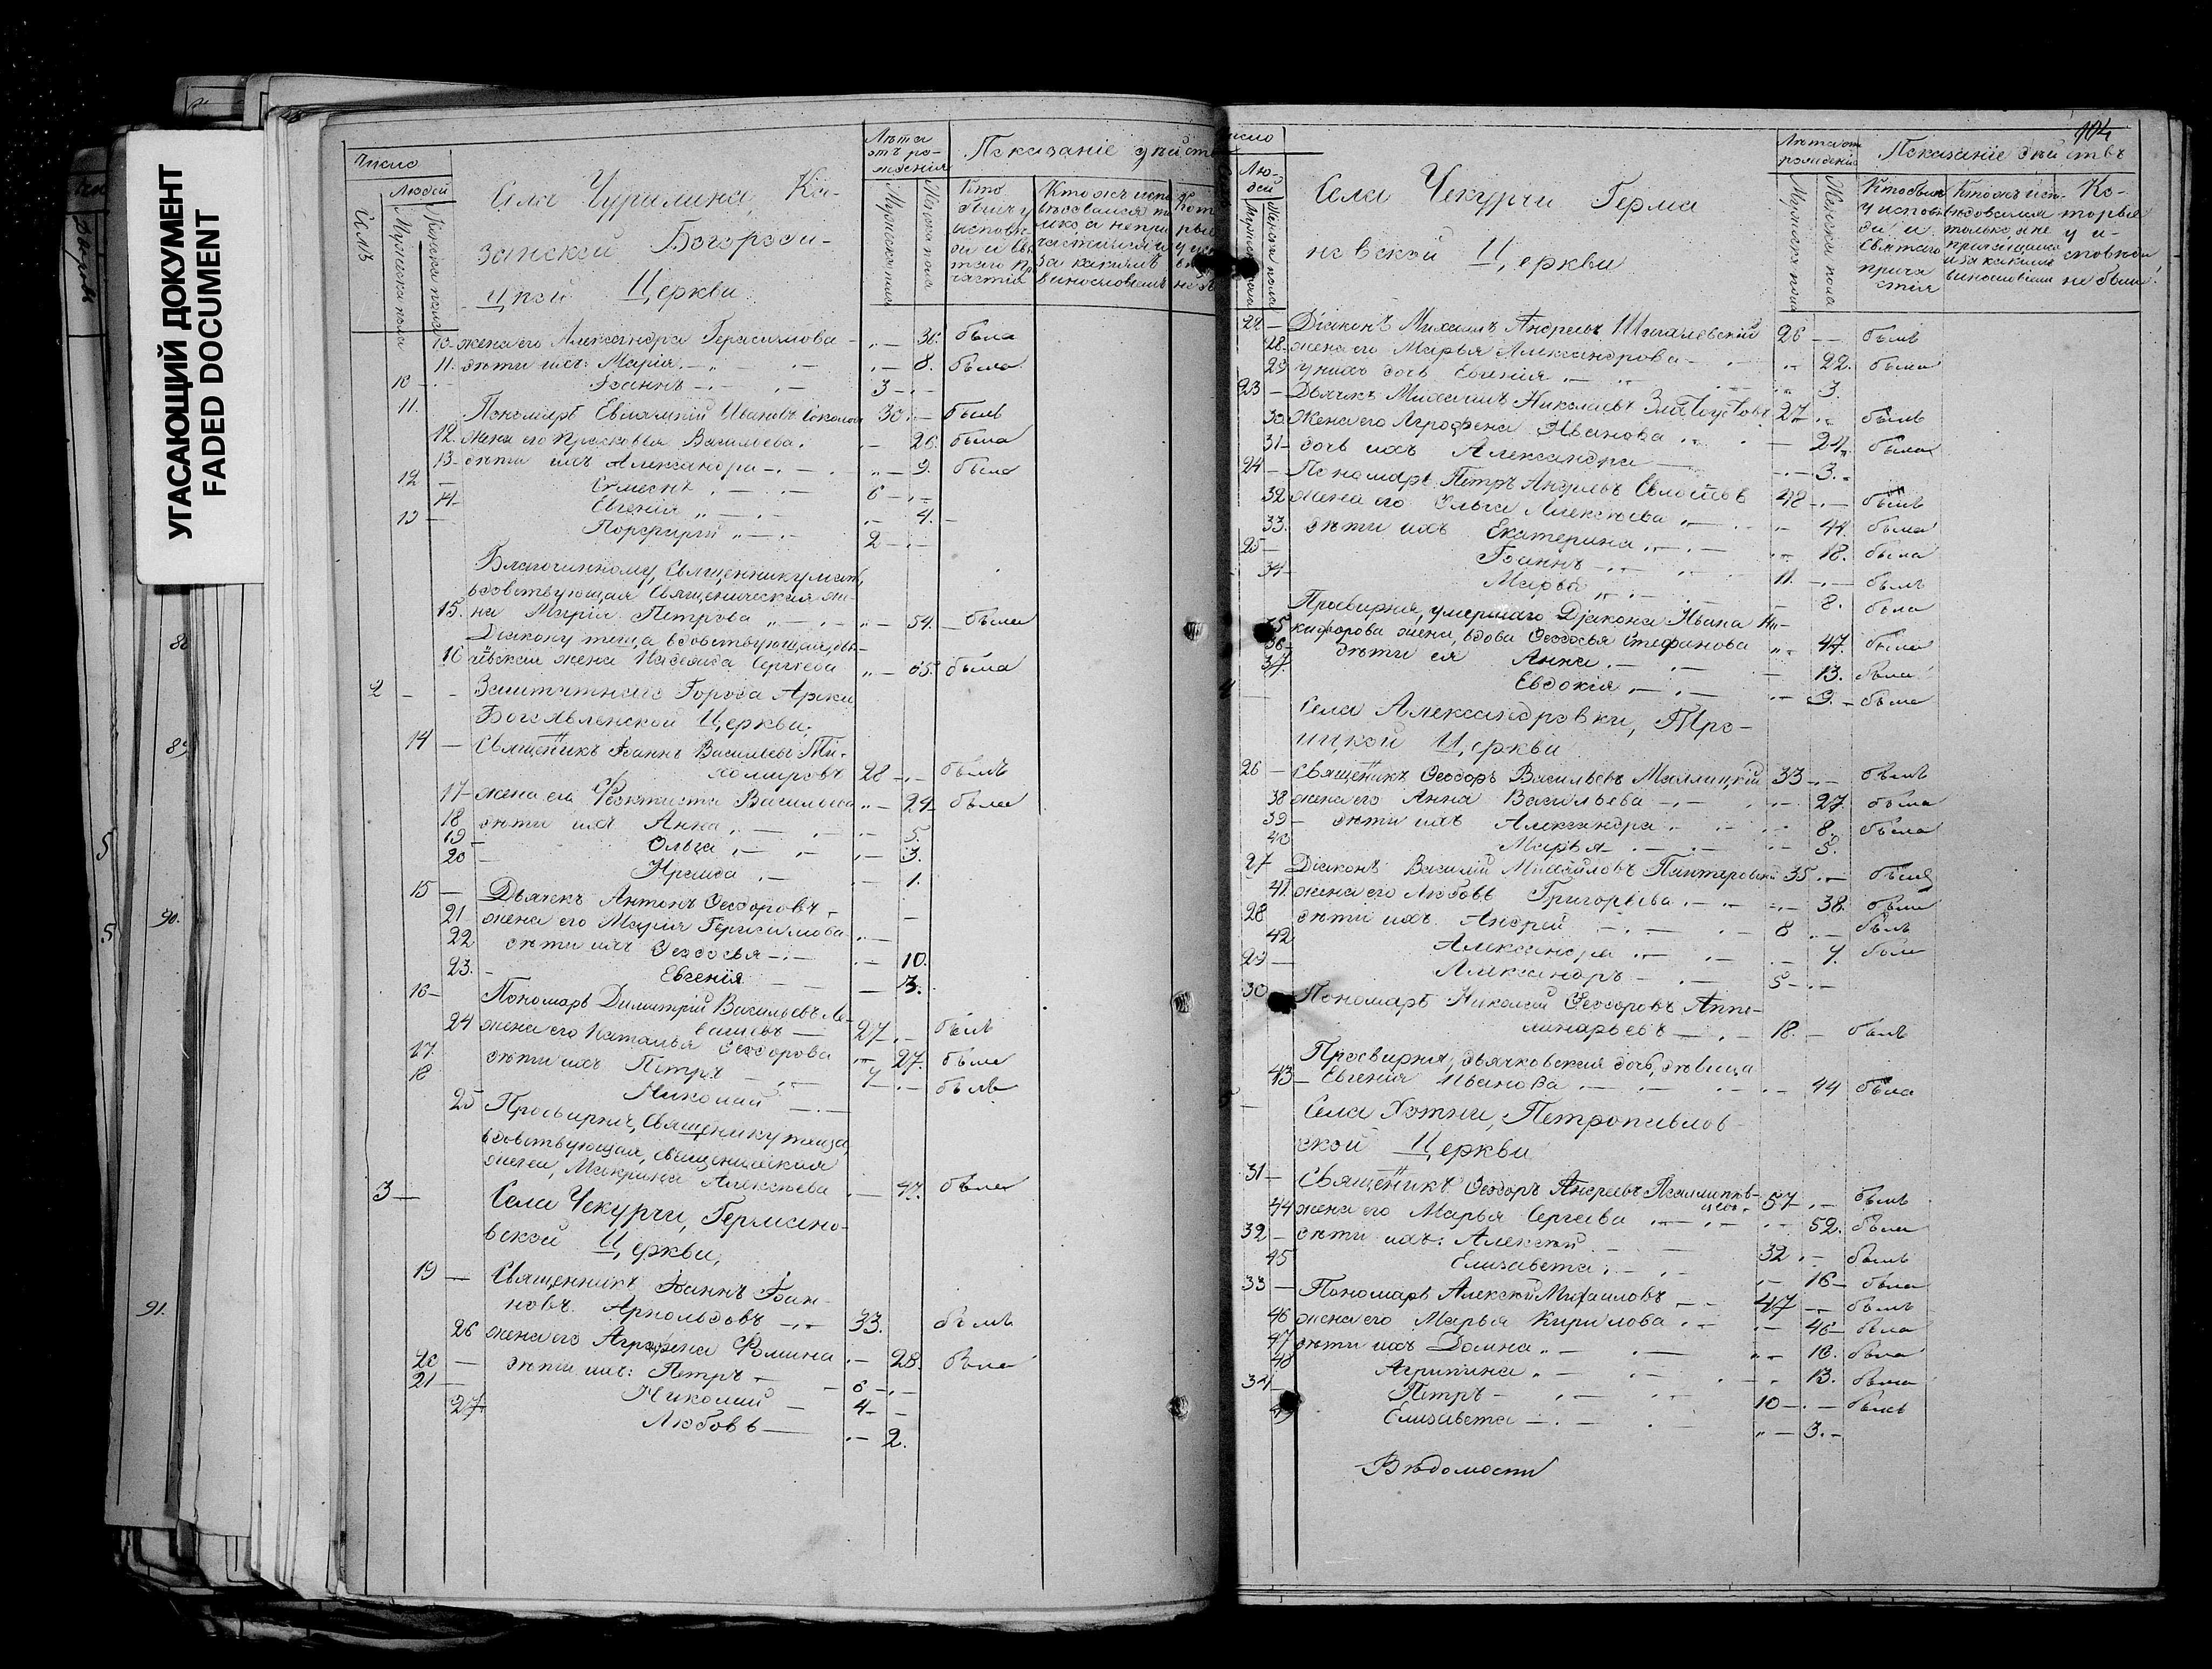 УГАСАЮЩИЙ ДОКУМЕНТ
FADED DOCUMENT
88
89
90.
91.
5
5
Число
Людей
Мужеска пола
Женска пола
Села Чурилина, Ка-
занской Богороди-
цкой Церкви
Лѣта
отъ ро-
жденія
Мужеска пола
Женска пола
Показаніе дѣйств
10. жена его Александра Герасимова — 36. была
11. дѣти ихъ: Марія — 8. была
10 — Іоаннъ — 3
11. Пономарь Евлампій Ивановъ Соколовъ 30 — былъ
12. жена его Прасковья Васильева — 26. была
13 — дѣти ихъ Александра — 9. была
12 — Симеонъ — 6
14. Евгенія — 4.
13 — Порфирій — 2
Благочинному, Священнику мать,
вдовствующая Священическая же-
15. на Марія Петрова — 54. была
Діакону теща, вдовствующая,
16 жена Надежда Сергѣева — 65. была
2 — Заштатнаго Города Арска
Богоявленской Церкви.
14 — Священникъ Іоаннъ Васильевъ Ти-
хомировъ 28 — былъ
17 — жена его Феоктиста Васильева — 24 была
18 дѣти ихъ Анна — 5.
19 — Ольга — 3.
20 — Ираида — 1.
15 — Дьячекъ Антонъ Ѳеодоровъ —
21 — жена его Марія Герасимова —
22 дѣти ихъ Ѳеодосья — 10.
23. — Евгенія — 3.
16 — Пономарь Димитрій Васильевъ Ле-
вашевъ — 27 — былъ
24 жена его Наталья Ѳеодорова — 27. была
17. дѣти ихъ Петръ — 7 — былъ
18 Николай —
25 Просвирня, Священнику теща,
вдовствующая, священническая
жена, Макрина Алексѣева — 47. была
3 — Села Чекурчи, Германо-
вской Церкви,
19 — Священникъ Іоаннъ Іоан-
новъ Арнольдовъ — 33. былъ
26 жена его Аграфена Фомина — 28. была
20 — дѣти ихъ: Петръ — 6
21 — Николай — 4
27 Любовь — 2.
104
Число
Лю-
дей
Мужеска пола
Женска пола
Села Чекурчи Герма
новской Церкви
Лѣта отъ
рожденія
Мужеска пола
Женска пола
Показаніе дѣйствъ
Кто былъ
у испове-
ди и
Святаго
прича
стія
Кто жъ исп-
вѣдовался
только, а не
причащался
и за какимъ
винословіемъ
Ко-
торые
у и-
сповѣди
не были
22 — Діаконъ Михаилъ Андреевъ 26 — былъ
28. жена его Марья Александрова — 22. была
29 у нихъ дочь Евгенія — 3.
23 — Дьячекъ Михаилъ Николаевъ Златоустовъ 27 — былъ
30 Жена его Агрофена Иванова — 24. была
31 — дочь ихъ Александра — 3.
24 — Пономарь Петръ 48 — былъ
32 жена его Ольга Алексѣева — 44. была
33. дѣти ихъ Екатерина — 18. была
25 — Іоаннъ — 11. — былъ
34 — Марья — 8. была
Просвирня, умершаго Діакона Ивана Ни-
35 кифорова жена, вдова Ѳеодосья Стефанова — 47. была
36 — дѣти ея Анна — 13. была
37. Евдокія — 9. — была
4 Села Александровки, Тро-
ицкой Церкви
26 — Священникъ Ѳеодоръ Васильевъ Малицкій 33 — былъ
38 жена его Анна Васильева — 27. была
39 — дѣти ихъ Александра — 8. была
40 Марья — 5.
27 Діаконъ Василій Михайловъ 35 — былъ
41. жена его Любовь Григорьева — 38. была
28 дѣти ихъ Андрей — 8 — былъ
42 Александра — 7. была
29 — Александръ — 5 —
30 — Пономарь Николай Ѳеодоровъ Аппо-
линарьевъ — 18. — былъ
Просвирня, дьячковская дочь, дѣвица
43 — Евгенія Иванова — 44 была
Села Хотни, Петропавлов-
ской Церкви
31 — Священникъ Ѳеодоръ Андреевъ 57 — былъ
44 жена его Марья Сергѣева — 52. была
32 — дѣти ихъ: Алексѣй — 32 — былъ
45 Елизавета — 16 — была
33 — Пономарь Алексѣй Михаиловъ — 47 — былъ
46 жена его Марья Кирилова — 46 — была
47 дѣти ихъ Домна — 16. была
48 Агрипина — 13. была
34 — Петръ — 10 — былъ
49 Елизавета — 3. —
Вѣдомости